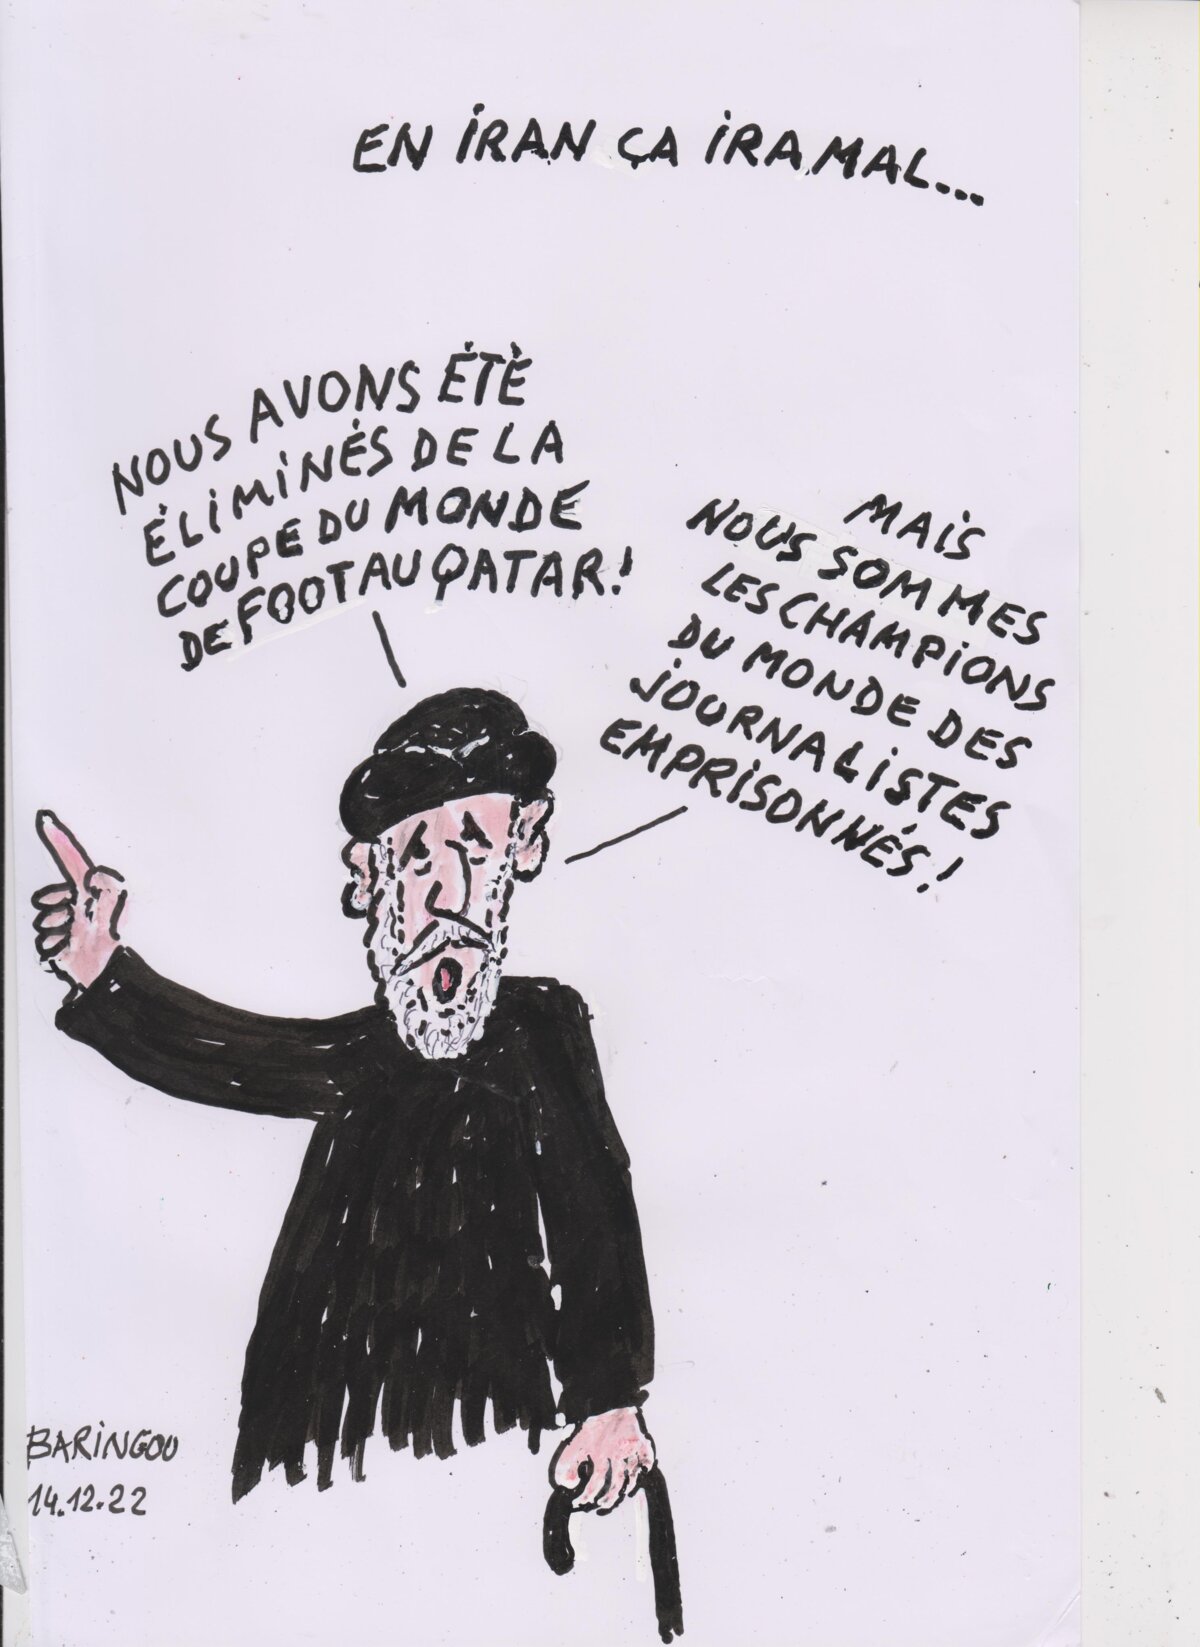 EN IRAN ÇA IRA MAL...
NOUS AVONS ÉTÈ
ÉLIMINÉS DE LA
COUPE DU MONDE
DE FOOT AU QATAR!
MAIS
NOUS SOMMES
LES CHAMPIONS
DU MONDE DES
JOURNALISTES
EMPRISONNÉS!
BARINGOU
14.12.22